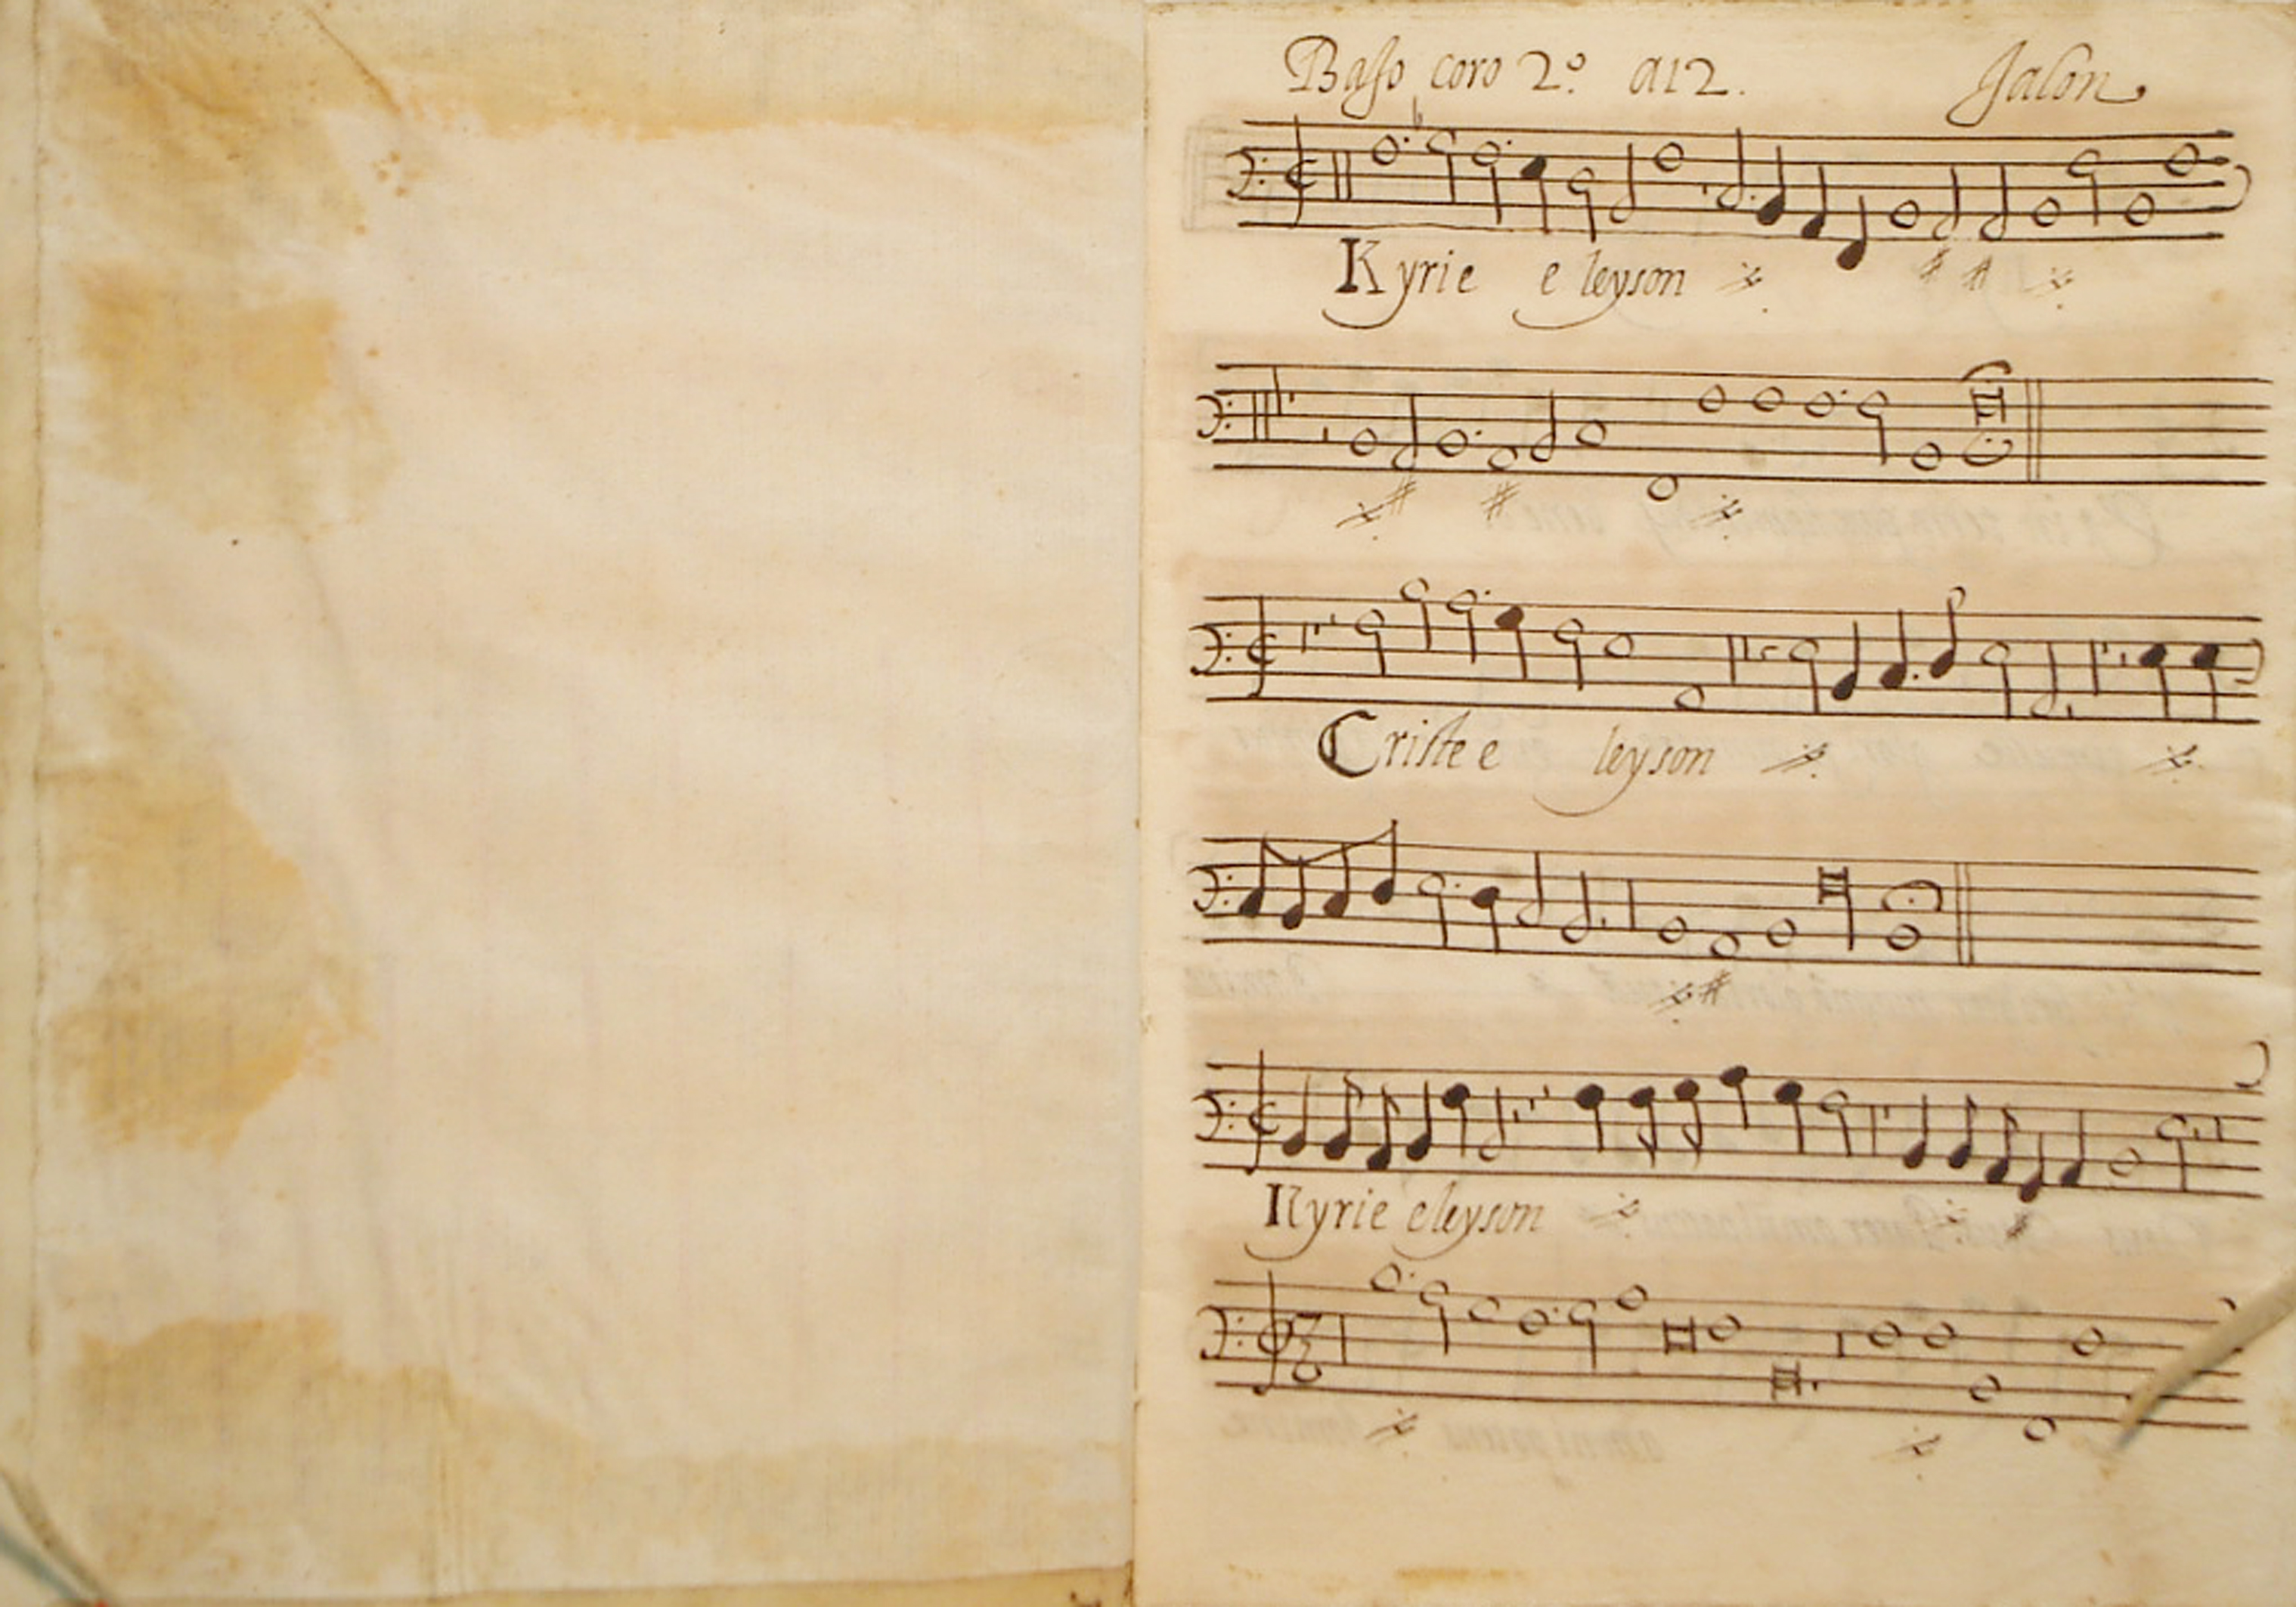 Baſo coro 2º. a12. Jalon
Kyrie e leyson
Criſte e leyson
Kyrie eleyson